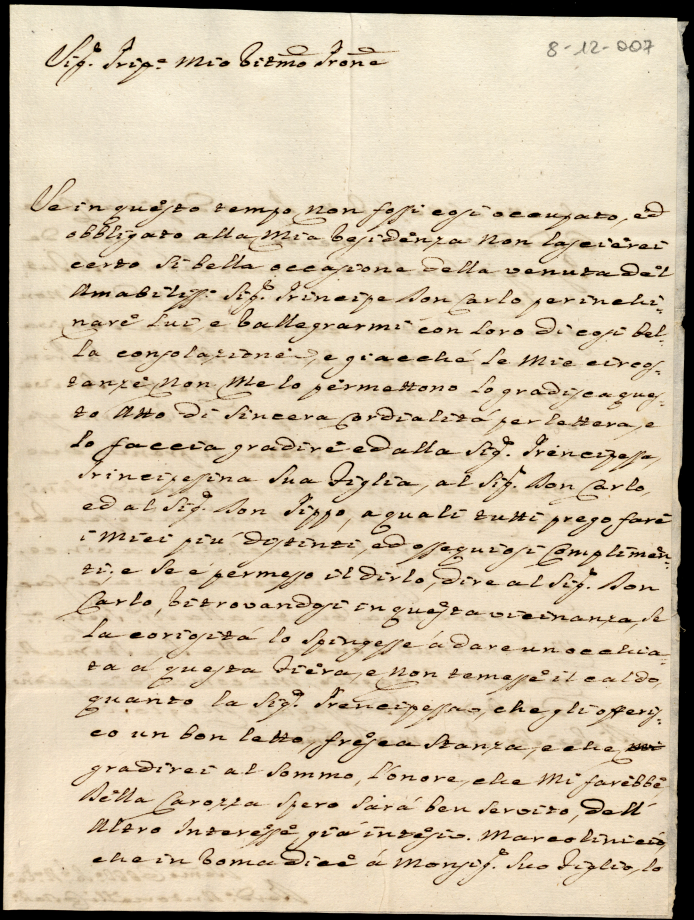 8-12-007
Sig.r Prip.e Mio Vetmo Prone
Se in questo tempo non fossi cosi occupato, ed
obbligato alla Mia Residenza Non lascierei
certo si bella occazione della venuta del
Amabiliss.o Sig.r Principe Don Carlo per inchi-
nare Lui, e Rallegrarmi con Loro di cosi bel-
la consolazione, e giacché le Mie circos-
tanze Non Me lo permettono lo gradisca ques-
to Atto di Sincera Cordialitá per lettera, e
lo faccia gradire ed alla Sig.ra Principessa,
Principesina Sua Figlia, al Sig.r Don Carlo,
ed al Sig.r Don Pippo, a quali tutti prego fare
i Miei piú distinti, ed ossequiosi Complimen-
ti, e Se è permesso il dirlo, dire al Sig.r Don
Carlo, Ritrovandosi in questa vicinanza, se
la coriositá lo Spingesse á dare un occhia-
ta a questa Fiera, e Non temesse il caldo,
quanto la Sig.ra Prencipessa, che gli offeris-
co un bon letto, fresca Stanza, e che
gradirei al Sommo, l'onore, che Mi farebbe
Della Carozza Spero Sará ben Servito, dell'
Altro Interesse, giá intesi. Marcolini ció,
che in Roma dice á Monsig.r Suo Figlio, lo